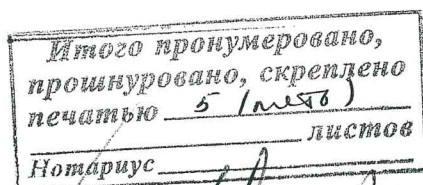 Итого пронумеровано,
прошнуровано, скреплено
печатью 5 (пять)
листов
Нотариус